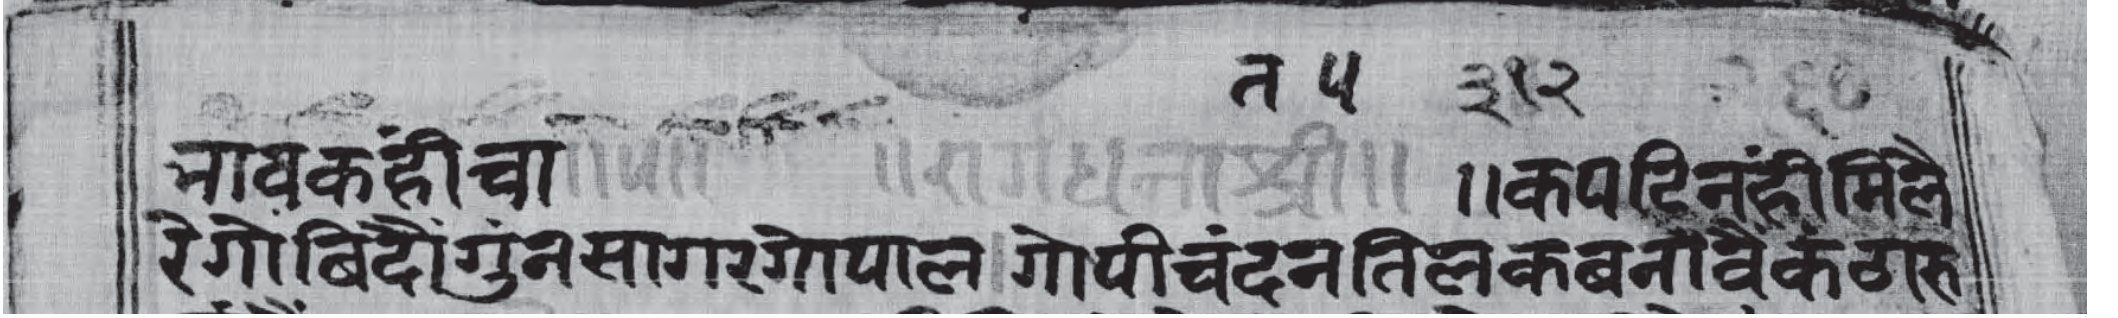 त ५ ३१२ २६७
नाव कहीं चा ॥५॥ ॥राग धनाश्री॥ ॥कपटि नंही मिलै
रे गोबिंदौ गुंन सागर गोपाल । गोपी चंदन तिलक बनावै कंठारु